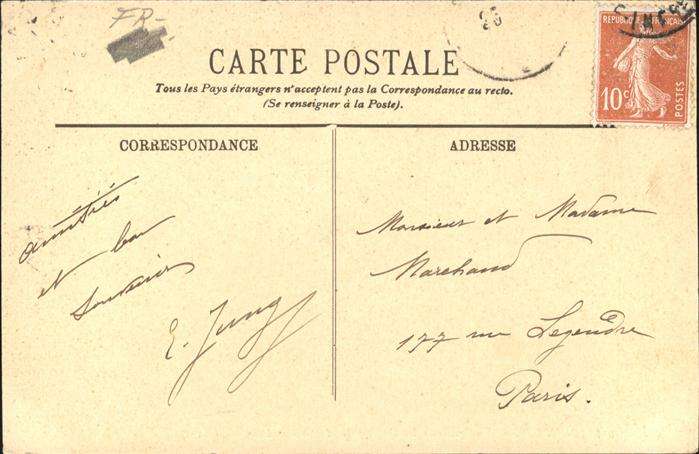 FR-
CARTE POSTALE
Tous les Pays étrangers n'acceptent pas la Correspondance au recto.
(Se renseigner à la Poste).
REPUBLIQUE FRANÇAISE
10c
POSTES
CORRESPONDANCE
amitiés
et bon
souvenir
E. Jung
ADRESSE
Monsieur et Madame
Marchand
177 rue Legendre
Paris.